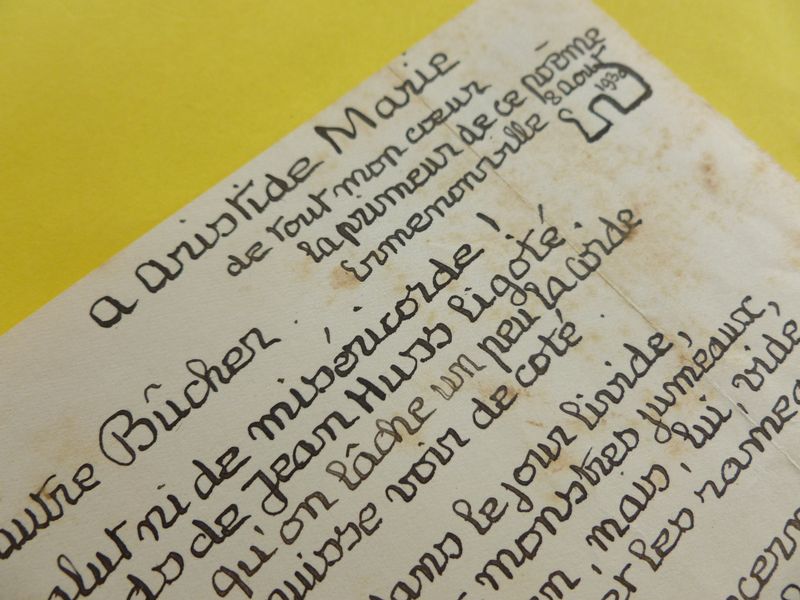 A Aristide Marie
de tout mon cœur
la primeur de ce poème
Ermenonville 8 Aout
193
autre Bûcher
ni de miséricorde !
de Jean Huss ligoté.
qu'on lâche un peu la corde
voir de coté.
le jour livide,
monstres jumeaux,
mais, lui, vide
les